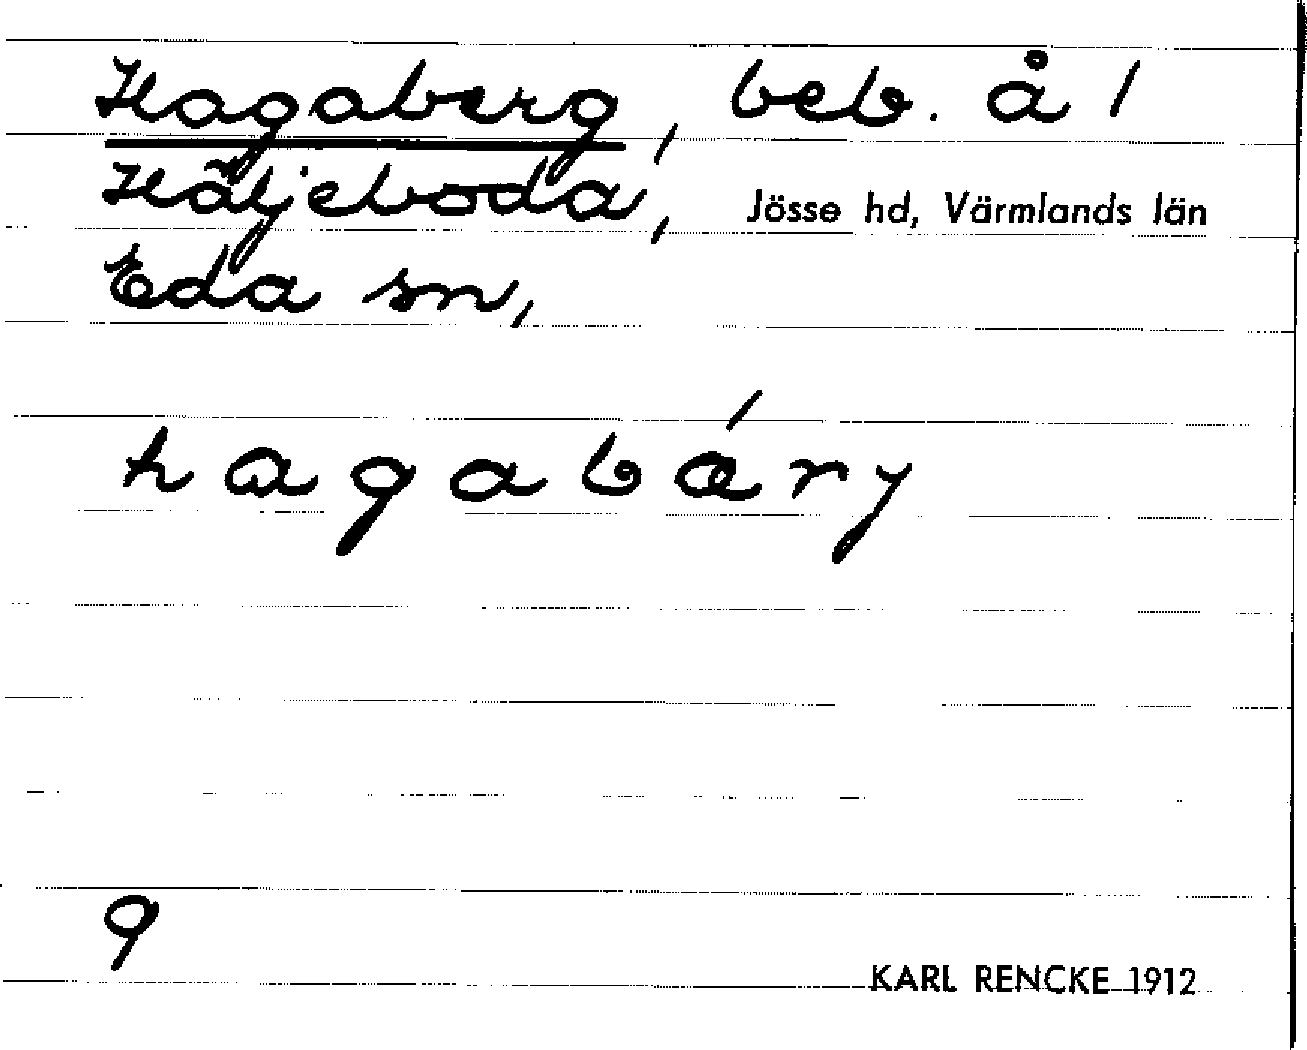 Hagaberg, beb. å 1
Häljeboda, Jösse hd, Värmlands län
Eda sn,
hagabǽry
9
KARL RENCKE 1912